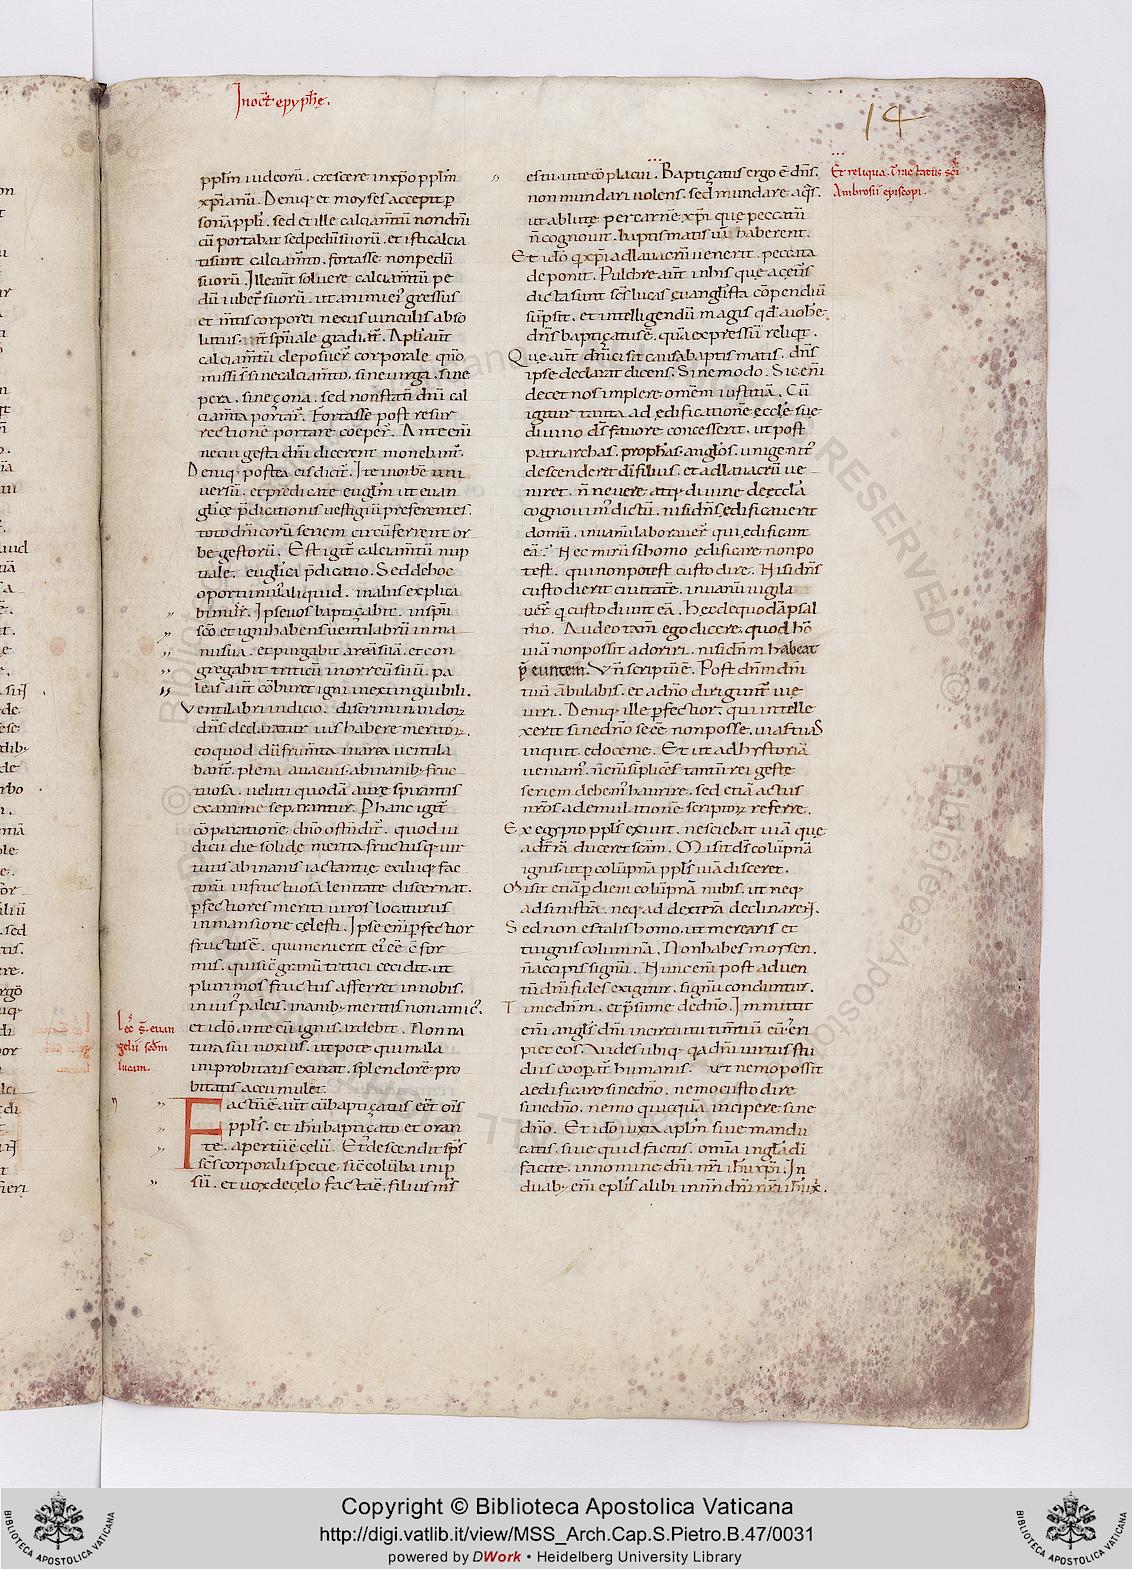 In oct̄ epyphīe.
14
pplm̄ iudeorū. crescere in xp̄o pplm̄
xp̄ianū. Deniq; et moyses accepit p̄
sonā ppli. sed et ille calciam̄tū non dn̄i
cū portabat sed pedū suorū. et isti calcia
tisunt calciam̄to. fortasse non pedū
suorū. Ille aūt soluere calciam̄tū pe
dū iubet̄ suorū. ut animi ei' gressus
et m̄tis corporei nexus uinculis abso
lutus. int̄ sp̄uale gradiat̄. Apl̄i aūt
calciam̄tū deposuer̄ corporale qn̄o
missi s̄ sine calciam̄to. sine uirga. sine
pera. sine çona. sed non statī dn̄i cal
ciam̄ta portar̄. Fortasse post resur
rectionē portare coeper̄. Ante eni
necui gesta dn̄i dicerent monebant̄.
Deniq; postea eis dicit̄. Ite in orbē uni
uersū. et predicate euglm̄ ut euan
glicę p̄dicationis uestigiū preferentes.
toto dn̄icorū seriem circūferrent or
be gestorū. Est igit̄ calciam̄tū nup
tiale. euglīci p̄dicatio. Sed de hoc
oportunius aliquid. in aliis explica
bimur̄. Ipse uos baptiçabit. in spū
sc̄o et igni habens uentilabrū in ma
nu sua. et purgabit areā suā. et con
gregabit triticū in orreū suū. pa
leas aūt cōburet igni inextinguibili.
Ventilabri indicio. discriminandoꝝ
dn̄s declaratur ius habere meritoꝝ.
eo quod dū frum̄ta in area uentila
bant̄. plena a uacuis. ab inanib; fruc
tuosa. ueluti quodā aurę spirantis
examine separantur. Per hanc igit̄
cōparationē dn̄o ostendit̄. quod iu
dicii die solidę merita fructusq; uir
tutis ab inanis iactantię exiliūq; fac
torū infructuosa leuitate discernat.
p̄fectiores meriti uiros locaturus
in mansione cęlesti. Ipse eni p̄fectior
fructus ē. qui meruerit ei' eē cōfor
mis. qui sic̄ granū tritici cecidit. ut
plurimos fructus afferret in nobis.
inuius paleis. inanib; meritis non amic̄.
et idō ante eū ignis ardebit. Non na
tura sui noxius. ut pote qui mala
improbitatis exurat. splendorē pro
bitatis accumulet.
Lec̄ s̄. euan
gelii secdm
lucam.
Factū ē aūt cū baptiçatus eēt om̄s
ppls̄. et ih̄u baptiçato et oran
te. apertū ē cęlū. Et descendit sp̄s
sc̄s corporali specie sic̄ colūba in ip
sū. et uox de cęlo facta ē. filius m̄s
es tu. in te cōplacui. Baptiçatus ergo ē dn̄s.
non mundari uolens. sed mundare aq̄s.
ut ablutę per carnē xp̄i quę peccatū
n̄ cognouit. baptismatis ius haberent.
Et idō q̄ xp̄i ad lauacrū uenerit. peccata
deponit. Pulchre aūt in his que a cęt̄is
dicta sunt sc̄s lucas euanglista cōpendiū
sūpsit. et intelligendū magis qd̄ a iohe
dn̄s baptiçatus ē. quā expressū reliqt̄.
Quę aūt dn̄ici sit causa baptismatis. dn̄s
ipse declarat dicens. Sine modo. Sic eni
decet nos implere omēm iustitiā. Cū
igitur tanta ad ędificationē ecclę suę
diuino d̄s fauore concesserit. ut post
patriarchas. prophas̄. anglōs. unigenit'
descenderet dī filius. et ad lauacrū ue
niret. n̄ne uere atq; diuine de eccla
cognouim' dictū. nisi dn̄s ędificauerit
domū. in uanū laborauer̄ qui ędificant
eā? Nec mirū si homo ędificare non po
test. qui non potest custodire. Nisi dn̄s
custodierit ciuitatē. in uanū uigila
uer̄ q̄ custodiunt eā. Hec de quodā psal
mo. Audeo tam̄ ego dicere. quod ho
uiā non possit adoriri. nisi dn̄m habeat
p̄euntem. Vn̄ scriptū ē. Post dn̄m dm̄
tuū ābulabis. et a dn̄o diriguntꝛ uię
uiri. Deniq; ille p̄fectior. qui intelle
xerit sine dn̄o se eē non posse. uias tuas
inquit edoce me. Et ut ad hystoriā
ueniam̄. n̄ eni simplicēs tantū rei gestę
seriem debem' haurire. sed etiā actus
nr̄os ad emulationē scriptoꝝ referre.
Ex egypto ppls̄ exiuit. nesciebat uiā quę
ad t̄rā duceret scām. Misit d̄s colūpnā
ignis. ut p̄ colūpnā ppls̄ uiā disceret.
Misit etiā p̄ diem colūpnā nubis. ut neq;
ad sinistrā. neq; ad dexterā declinarent.
Sed non es talis homo. ut merearis et
tu ignis columnā. Non habes moysen.
n̄ accipis signū. Nunc eni post aduen
tū dn̄i fides exigitur. signū conduntur.
Time dn̄m. et p̄sume de dn̄o. Immittit
eni anglūs dn̄i in circuitu tim̄tiū eū. et eri
piet eos. Vides ubiq; q̄a dn̄i uirtus stu
diis cooperat̄ humanis. ut nemo possit
aedificare sine dn̄o. nemo custodire
sine dn̄o. nemo quicquā incipere sine
dn̄o. Et idō iuxta aplm̄ siue mandu
catis. siue quid facitis. omīa in glā dī
facite. in nomine dn̄i nr̄i ih̄u xp̄i. In
duab; eni eplis̄ alibi in nn̄ dn̄i nr̄i ih̄u x̄.
Et reliqua. Tractatus sc̄i
Ambrosii episcopi.
Copyright © Biblioteca Apostolica Vaticana
http://digi.vatlib.it/view/MSS_Arch.Cap.S.Pietro.B.47/0031
powered by DWork • Heidelberg University Library